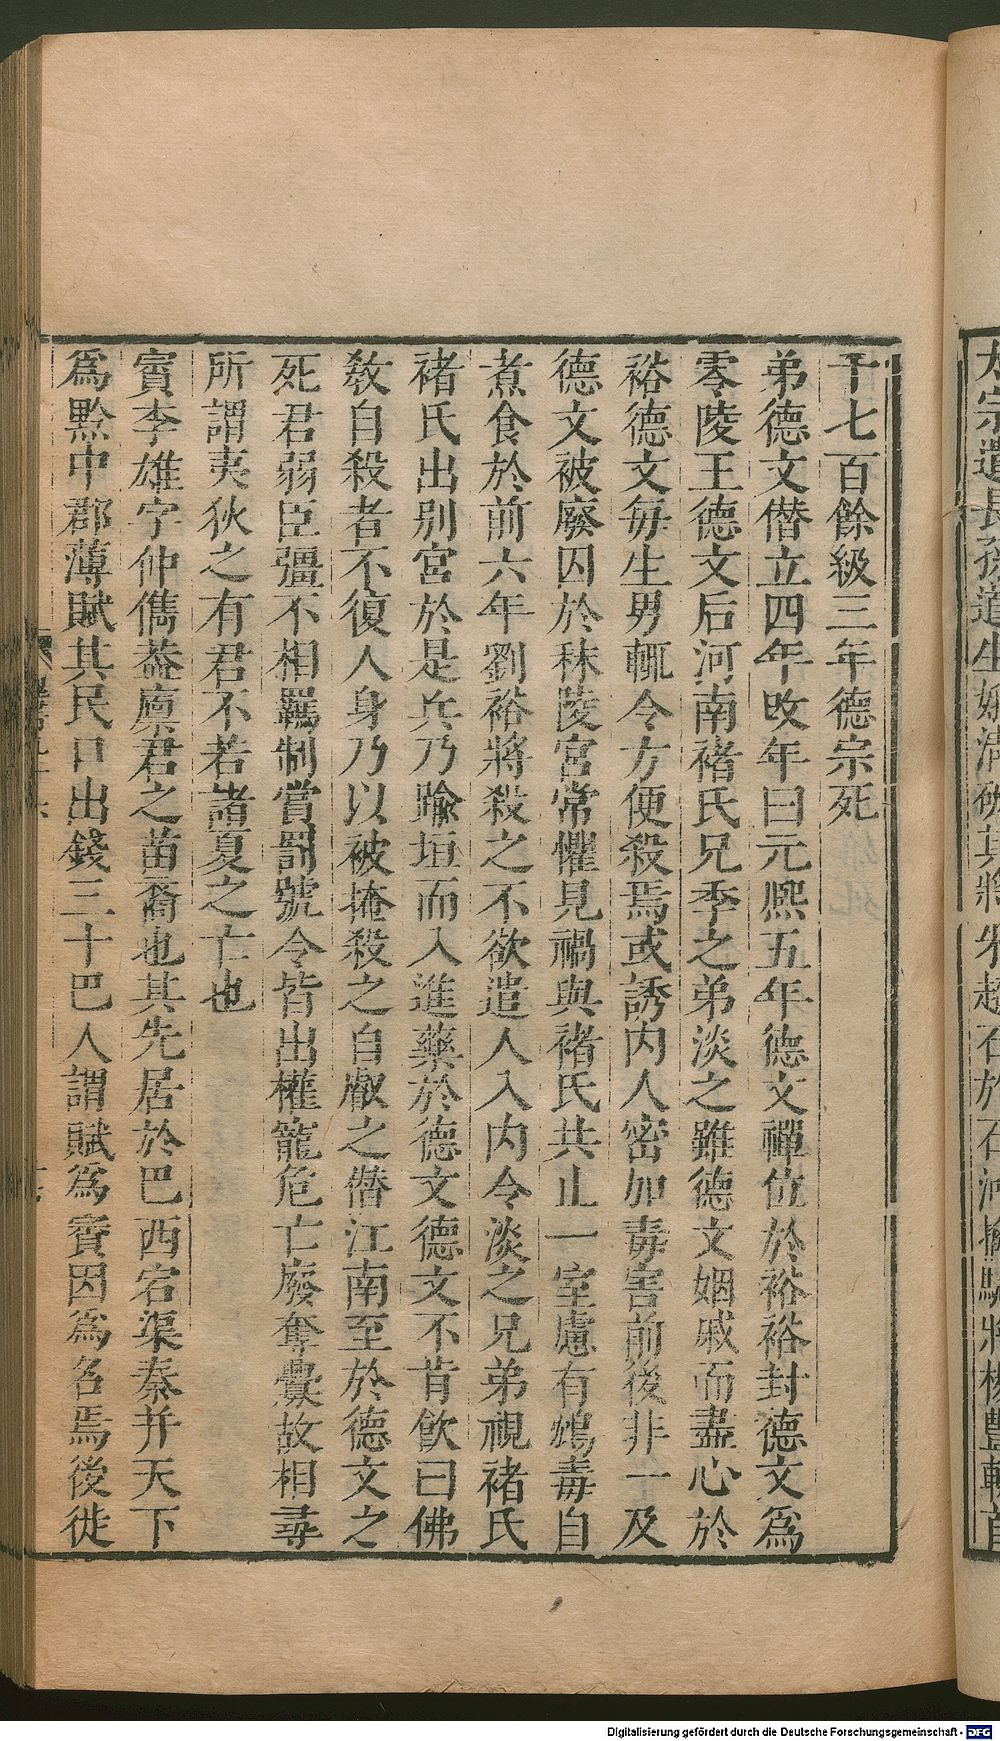 千七百餘級三年德宗死
弟德文僭立四年攺年曰元熙五年德文禪位於裕裕封德文爲
零陵王德文后河南褚氏兄季之弟淡之雖德文姻戚而盡心於
裕德文每生男輒令方便殺焉或誘內人密加毒害前後非一及
德文被廢囚於秣陵宮常懼見禍與褚氏共止一室慮有鴆毒自
煮食於前六年劉裕將殺之不欲遣人入內令淡之兄弟視褚氏
褚氏出別宮於是兵乃踰垣而入進藥於德文德文不肯飲曰佛
敎自殺者不復人身乃以被掩殺之自叡之僭江南至於德文之
死君弱臣彊不相羈制賞罰號令皆出權寵危亡廢奪釁故相尋
所謂夷狄之有君不若諸夏之亡也
賨李雄字仲儁葢廩君之苗裔也其先居於巴西宕渠秦并天下
爲黔中郡薄賦其民口出錢三十巴人謂賦爲賨因爲名焉後徙
Digitalisierung gefördert durch die Deutsche Forschungsgemeinschaft - DFG